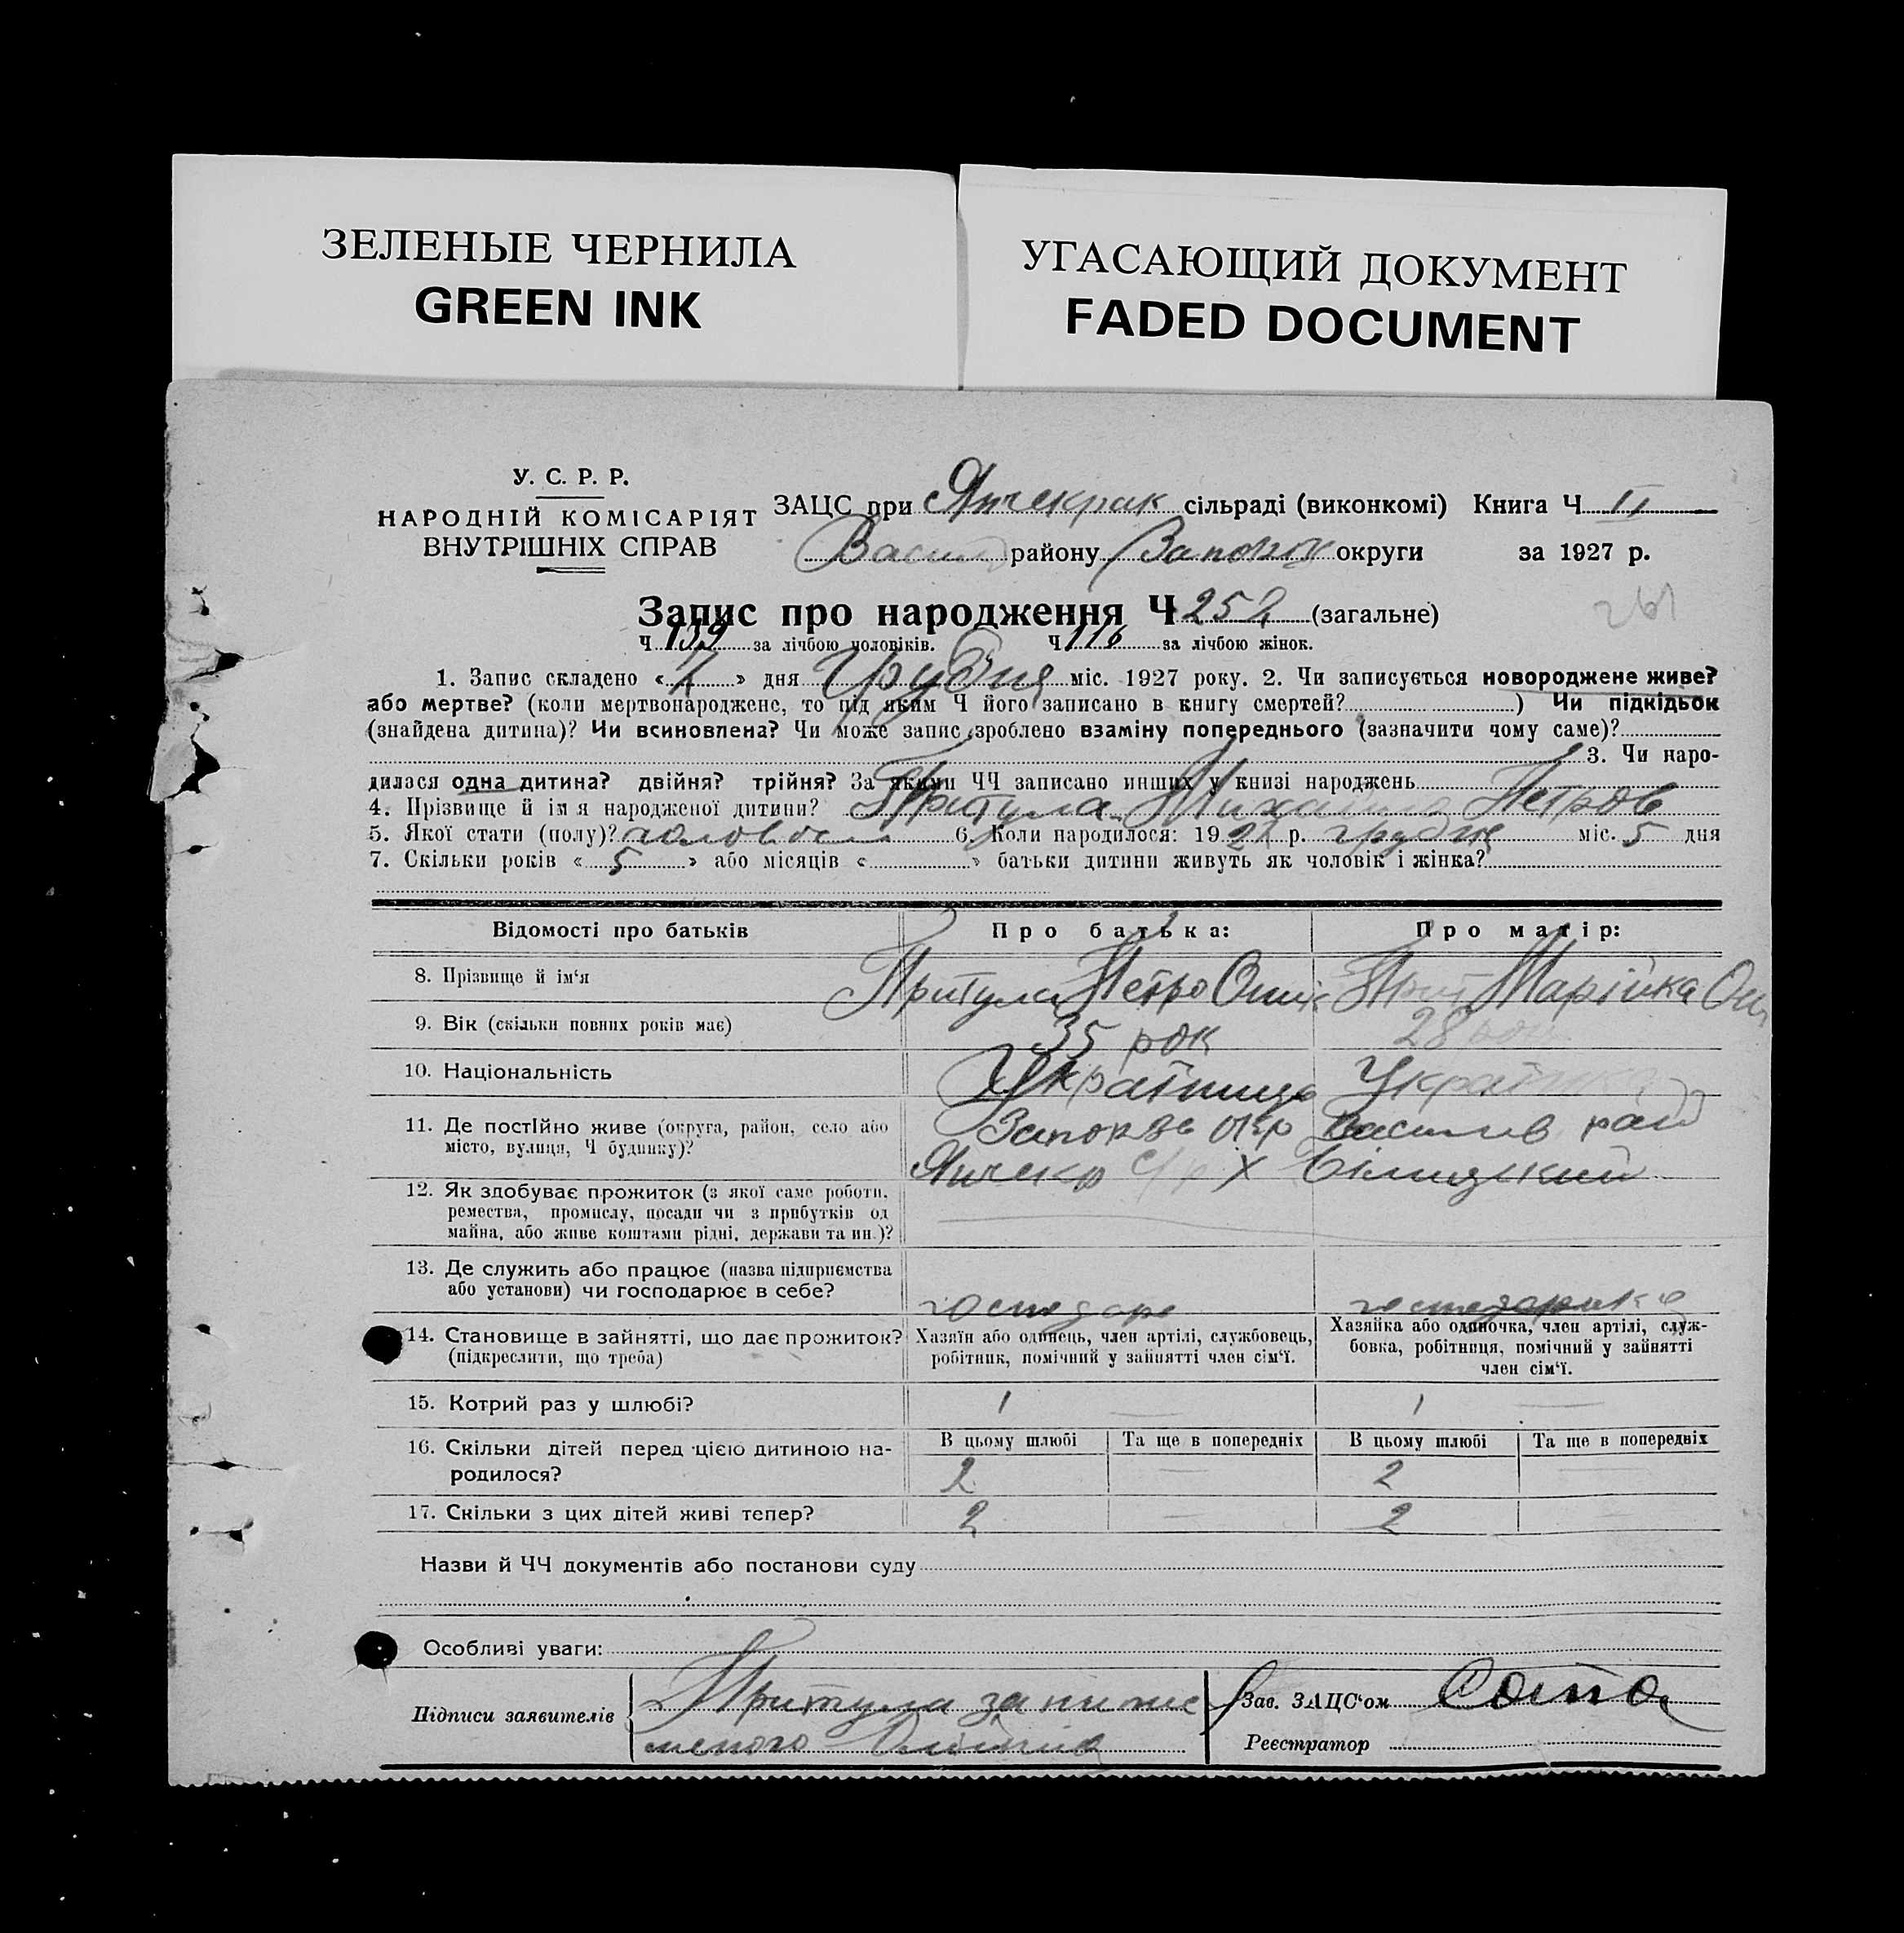 ЗЕЛЕНЫЕ ЧЕРНИЛА
GREEN INK
УГАСАЮЩИЙ ДОКУМЕНТ
FADED DOCUMENT
У. С. Р. Р.
НАРОДНІЙ КОМІСАРІЯТ
ВНУТРІШНІХ СПРАВ
ЗАЦС при Янчекрак сільраді (виконкомі) Книга Ч II
Васил району Запоріз округи за 1927 р.
Запис про народження Ч 252 (загальне)
261
Ч 139 за лічбою чоловіків. Ч 116 за лічбою жінок.
1. Запис складено « » дня Грудня міс. 1927 року. 2. Чи записується новороджене живе?
або мертве? (коли мертвонароджене, то під яким Ч його записано в книгу смертей? ) Чи підкідьок
(знайдена дитина)? Чи всиновлена? Чи може запис зроблено взаміну попереднього (зазначити чому саме)?
3. Чи наро-
дилася одна дитина? двійня? трійня? За якими ЧЧ записано инших у книзі народжень
4. Прізвище й ім'я народженої дитини? Притула Михайло Петров
5. Якої стати (полу)? 6. Коли народилося: 1927 р. грудня міс. 5 дня
7. Скільки років « 5 » або місяців « » батьки дитини живуть як чоловік і жінка?
Відомості про батьків Про батька: Про матір:
8. Прізвище й ім'я Притула Петро Прит Марійка
9. Вік (скільки повних років має) 35 рок 28 рок
10. Національність Українць Українка
11. Де постійно живе (округа, район, село або Запорізь окр Василів рай
місто, вулиця, Ч будинку)? Янчекр с/р х Біляцький
12. Як здобуває прожиток (з якої саме роботи,
ремества, промислу, посади чи з прибутків од
майна, або живе коштами рідні, держави та ин.)?
13. Де служить або працює (назва підприємства
або установи) чи господарює в себе? господарь господарька
14. Становище в зайнятті, що дає прожиток? Хазяїн або одинець, член артілі, службовець, Хазяйка або одиночка, член артілі, служ-
(підкреслити, що треба) робітник, помічний у зайнятті член сім'ї. бовка, робітниця, помічний у зайнятті
член сім'ї.
15. Котрий раз у шлюбі? 1 — 1 —
16. Скільки дітей перед цією дитиною на- В цьому шлюбі Та ще в попередніх В цьому шлюбі Та ще в попередніх
родилося? 2 — 2 —
17. Скільки з цих дітей живі тепер? 2 — 2 —
Назви й ЧЧ документів або постанови суду
Особливі уваги:
Підписи заявителів Притула за непис
меного
Зав. ЗАЦС'ом
Реєстратор